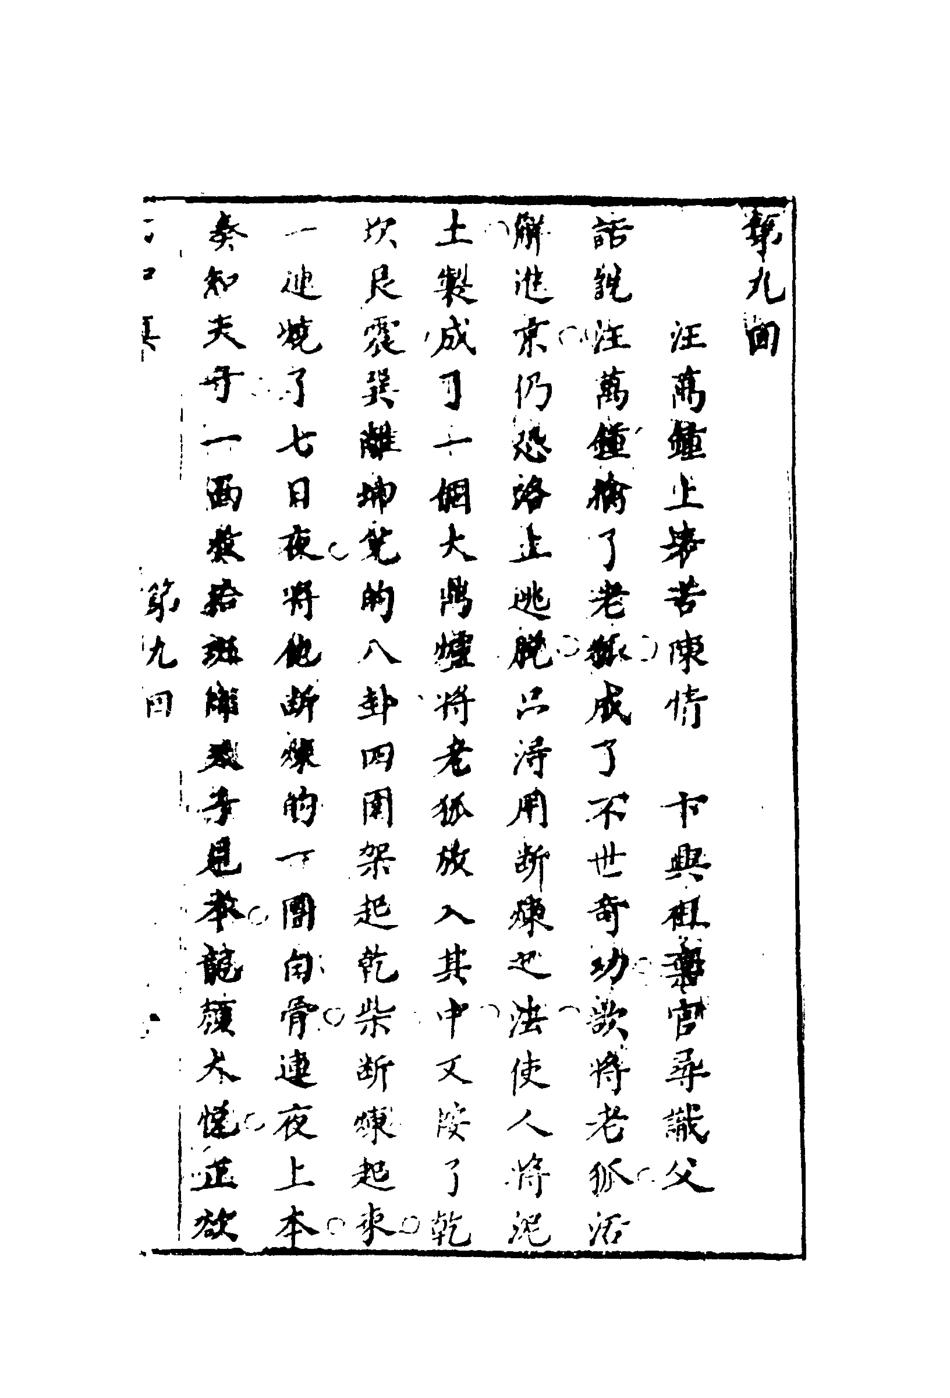 第九回
汪萬鐘上　苦陳情　卞興祖棄官尋識父
話說汪萬鐘擒了老狐成了不世奇功欲將老狐活
解進京仍恐洛止逃脫只淂用断煉之法使人將泥
土製成了一個大鼎爐將老狐放入其中又按了乾
坎艮震巽離坤兌的八卦四圍架起乾柴断煉起来
一連燒了七日夜將他断煉的一團白骨連夜上本
奏知天子一面救拾班師天子見本龍顏大悅正欲
第九回